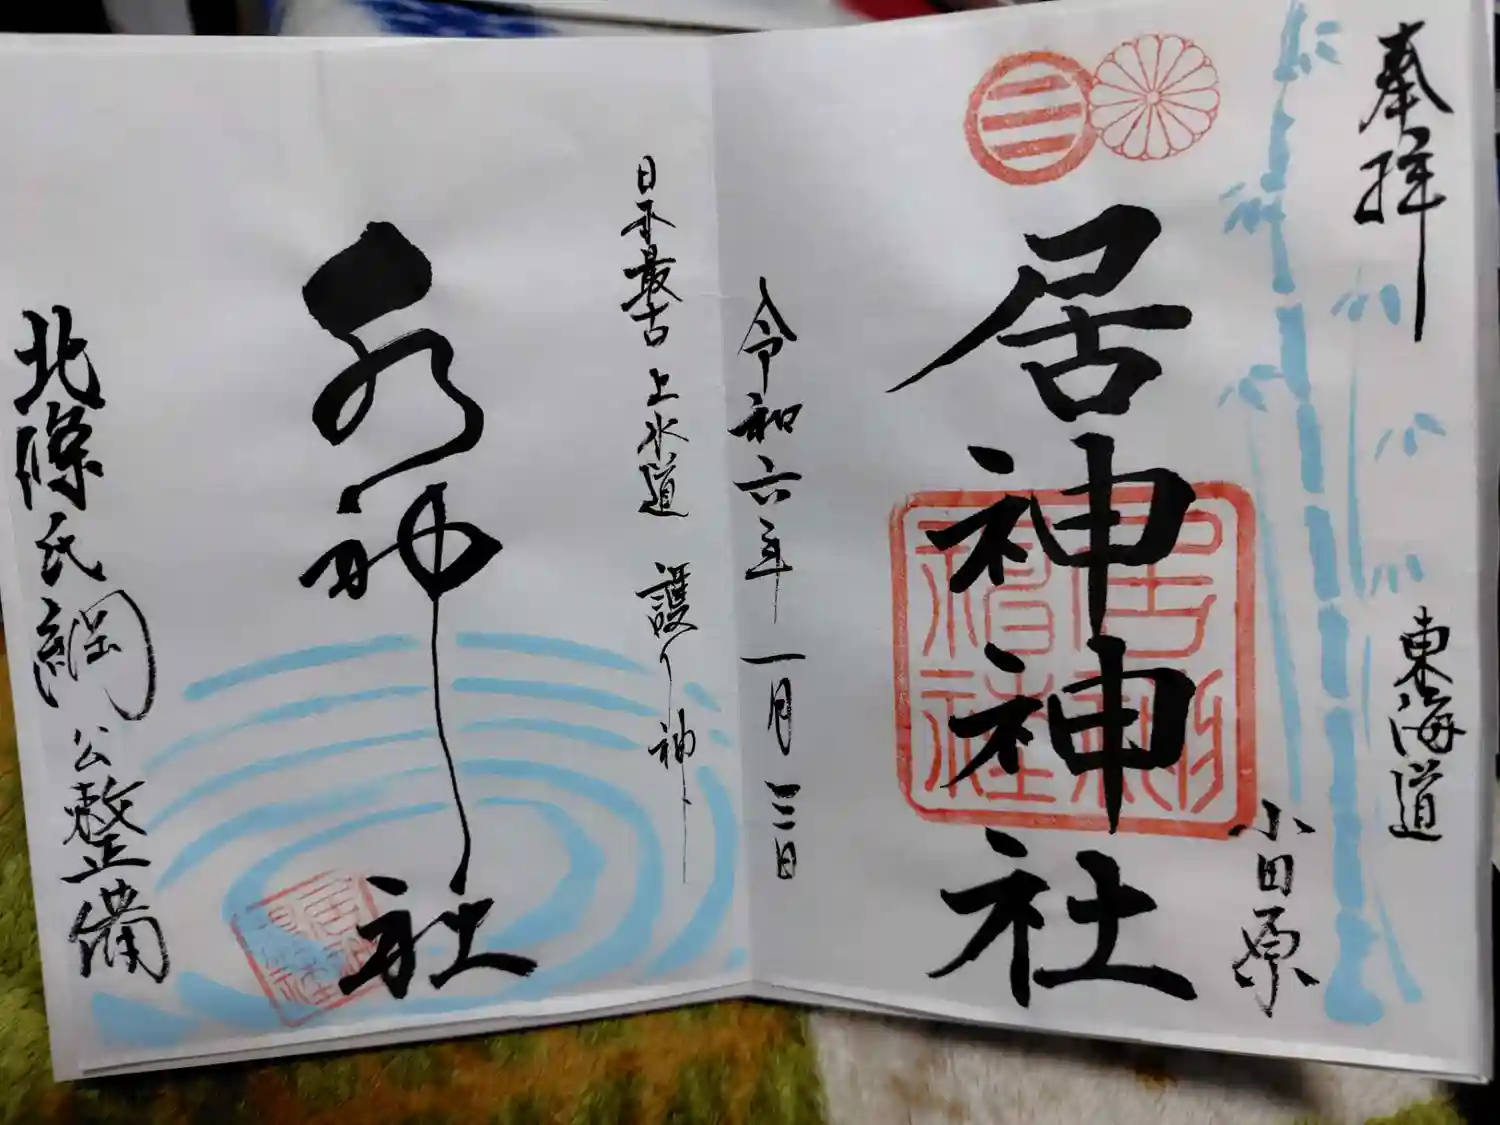 奉拝
東海道
小田原
居神神社
令和六年一月三日
日本最古 上水道 護り神
水神社
北條氏綱公整備